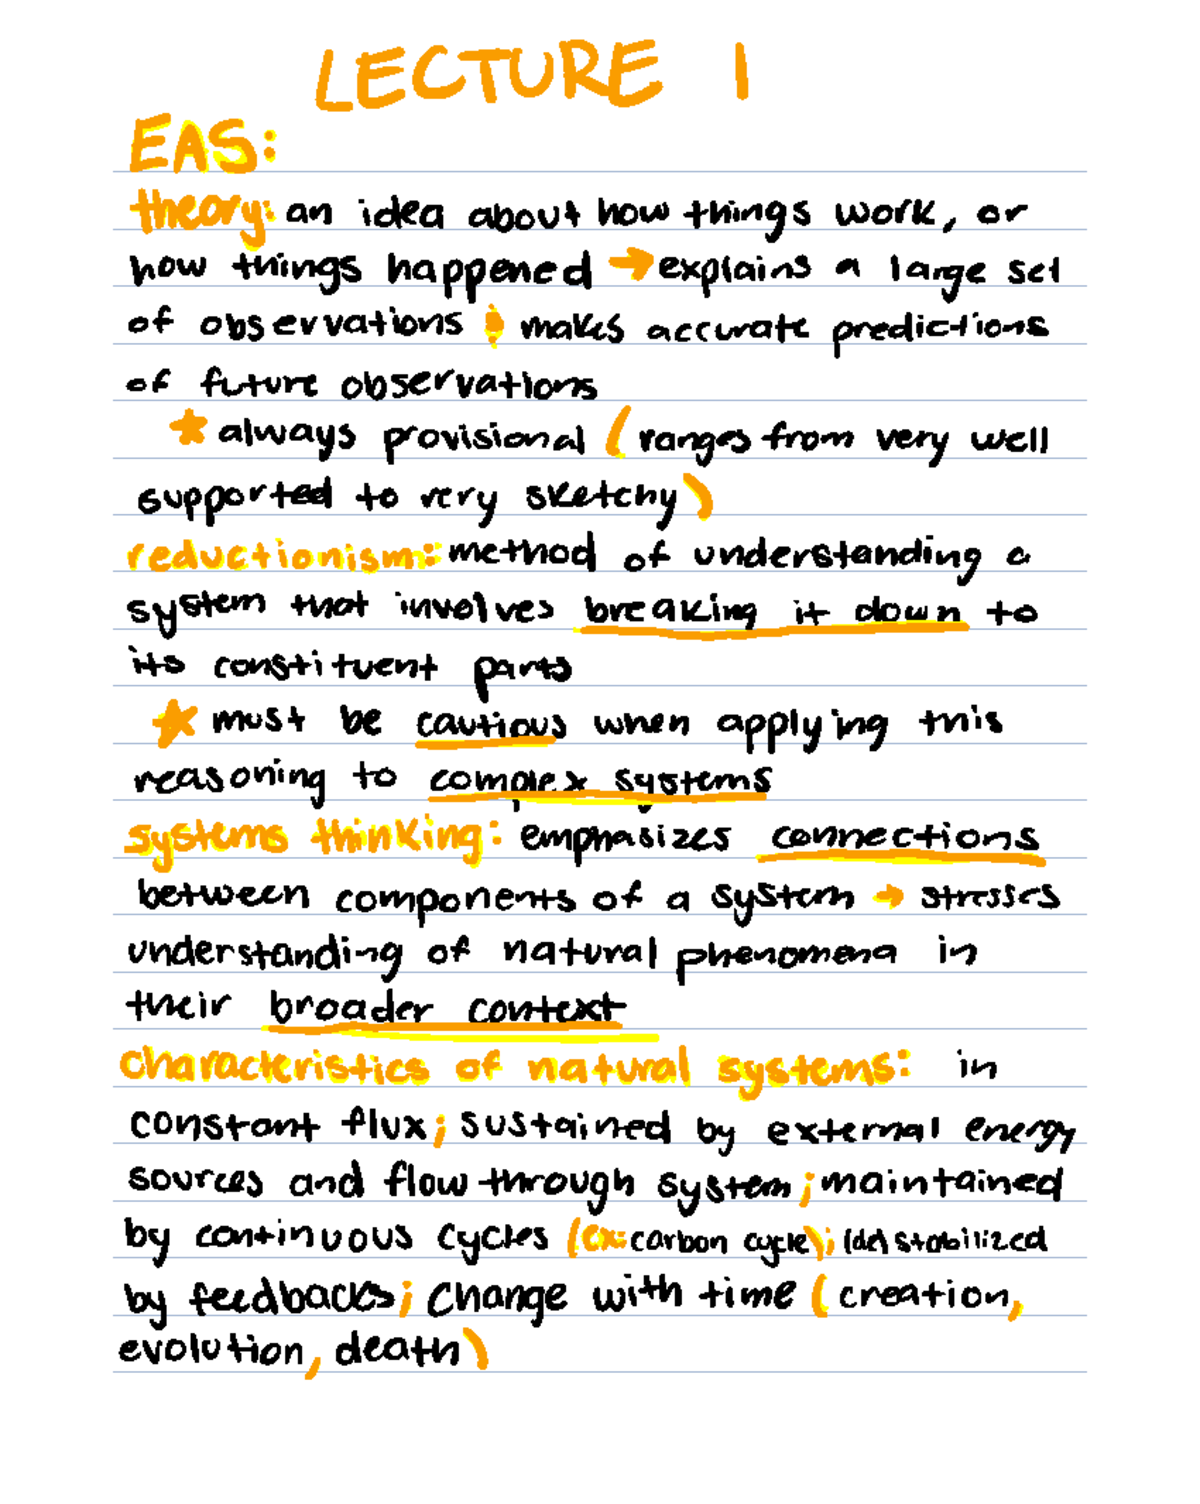 LECTURE 1
EAS:
theory: an idea about how things work, or
how things happened → explains a large set
of observations & makes accurate predictions
of future observations
★ always provisional (ranges from very well
supported to very sketchy)
reductionism: method of understanding a
system that involves breaking it down to
its constituent parts
★ must be cautious when applying this
reasoning to complex systems
systems thinking: emphasizes connections
between components of a system → stresses
understanding of natural phenomena in
their broader context
characteristics of natural systems: in
constant flux; sustained by external energy
sources and flow through system; maintained
by continuous cycles (ex: carbon cycle); (de)stabilized
by feedbacks; change with time (creation,
evolution, death)